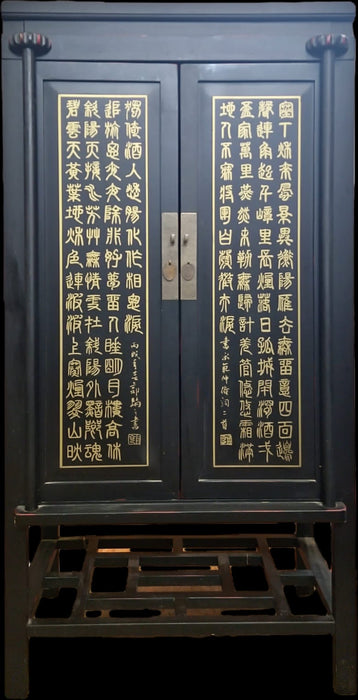 塞下秋來風景異衡陽雁去無留意四面邊
聲連角起千嶂里長煙落日孤城閉濁酒弌
盃家萬里燕然未勒無歸計羌管悠悠霜滿
地人不寐將軍白髮征夫淚 書宋范仲淹詞二首
碧雲天黃葉地秋色連波波上寒煙翠山映
斜陽天接水芳艸無情更在斜陽外黯鄉魂
追旅思夜夜除非好夢留人睡明月樓高休
獨倚酒入愁腸化作相思淚 丙戌年 書